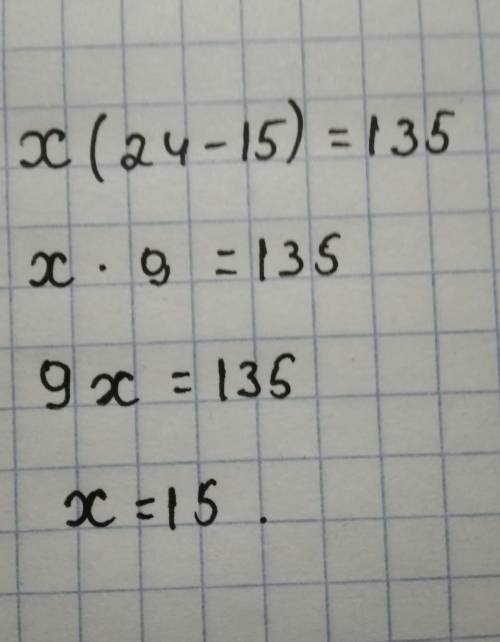 x(24-15)=135
x · 9 = 135
9x = 135
x = 15.